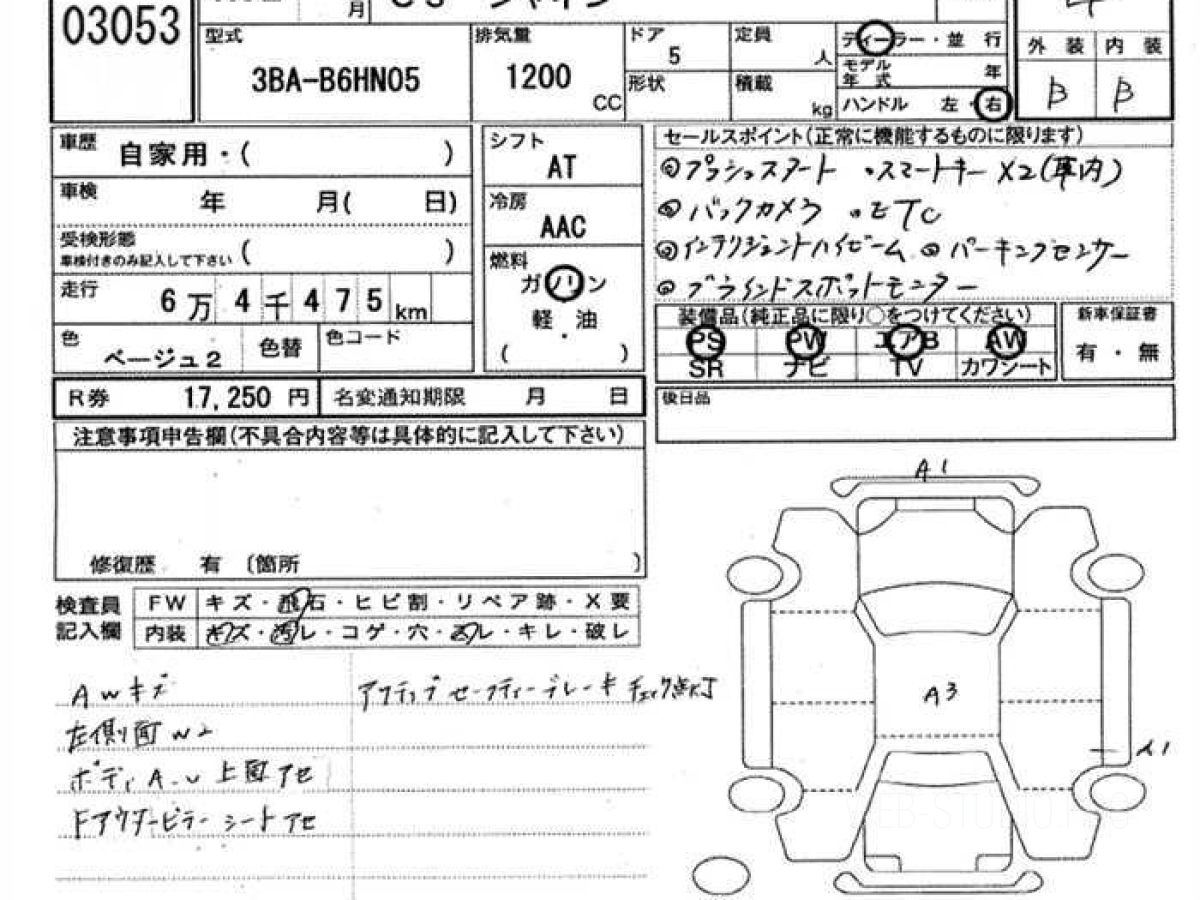 03053
月
C3 シャイン
型式
3BA-B6HN05
排気量
1200
CC
ドア
5
定員
人
形状
積載
kg
ディーラー・並 行
モデル
年 式
年
ハンドル 左・右
外 装 内 装
B B
車歴
自家用・( )
車検
年 月( 日)
受検形態
車検付きのみ記入して下さい ( )
走行
6万4千475km
色
ベージュ2
色替
色コード
シフト
AT
冷房
AAC
燃料
ガソリン
軽 油
・
( )
セールスポイント(正常に機能するものに限ります)
◎プッシュスタート ・スマートキー X2(車内)
◎バックカメラ ・ETC
◎インテリジェントハイビーム ◎パーキングセンサー
◎ブラインドスポットモニター
装備品(純正品に限り○をつけてください)
PS PW エアB AW
SR ナビ TV カワシート
新車保証書
有 ・ 無
R券 17,250 円
名変通知期限 月 日
後日品
注意事項申告欄(不具合内容等は具体的に記入して下さい)
修復歴 有 〔箇所 〕
検査員
記入欄
FW キズ・飛石・ヒビ割・リペア跡・X要
内装 キズ・汚レ・コゲ・穴・スレ・キレ・破レ
AWキズ
左側面W2
ボディA.U 上面アセ
Fアウターピラー シートアセ
アクティブセーフティーブレーキ チェック点灯
A1
A3
A1